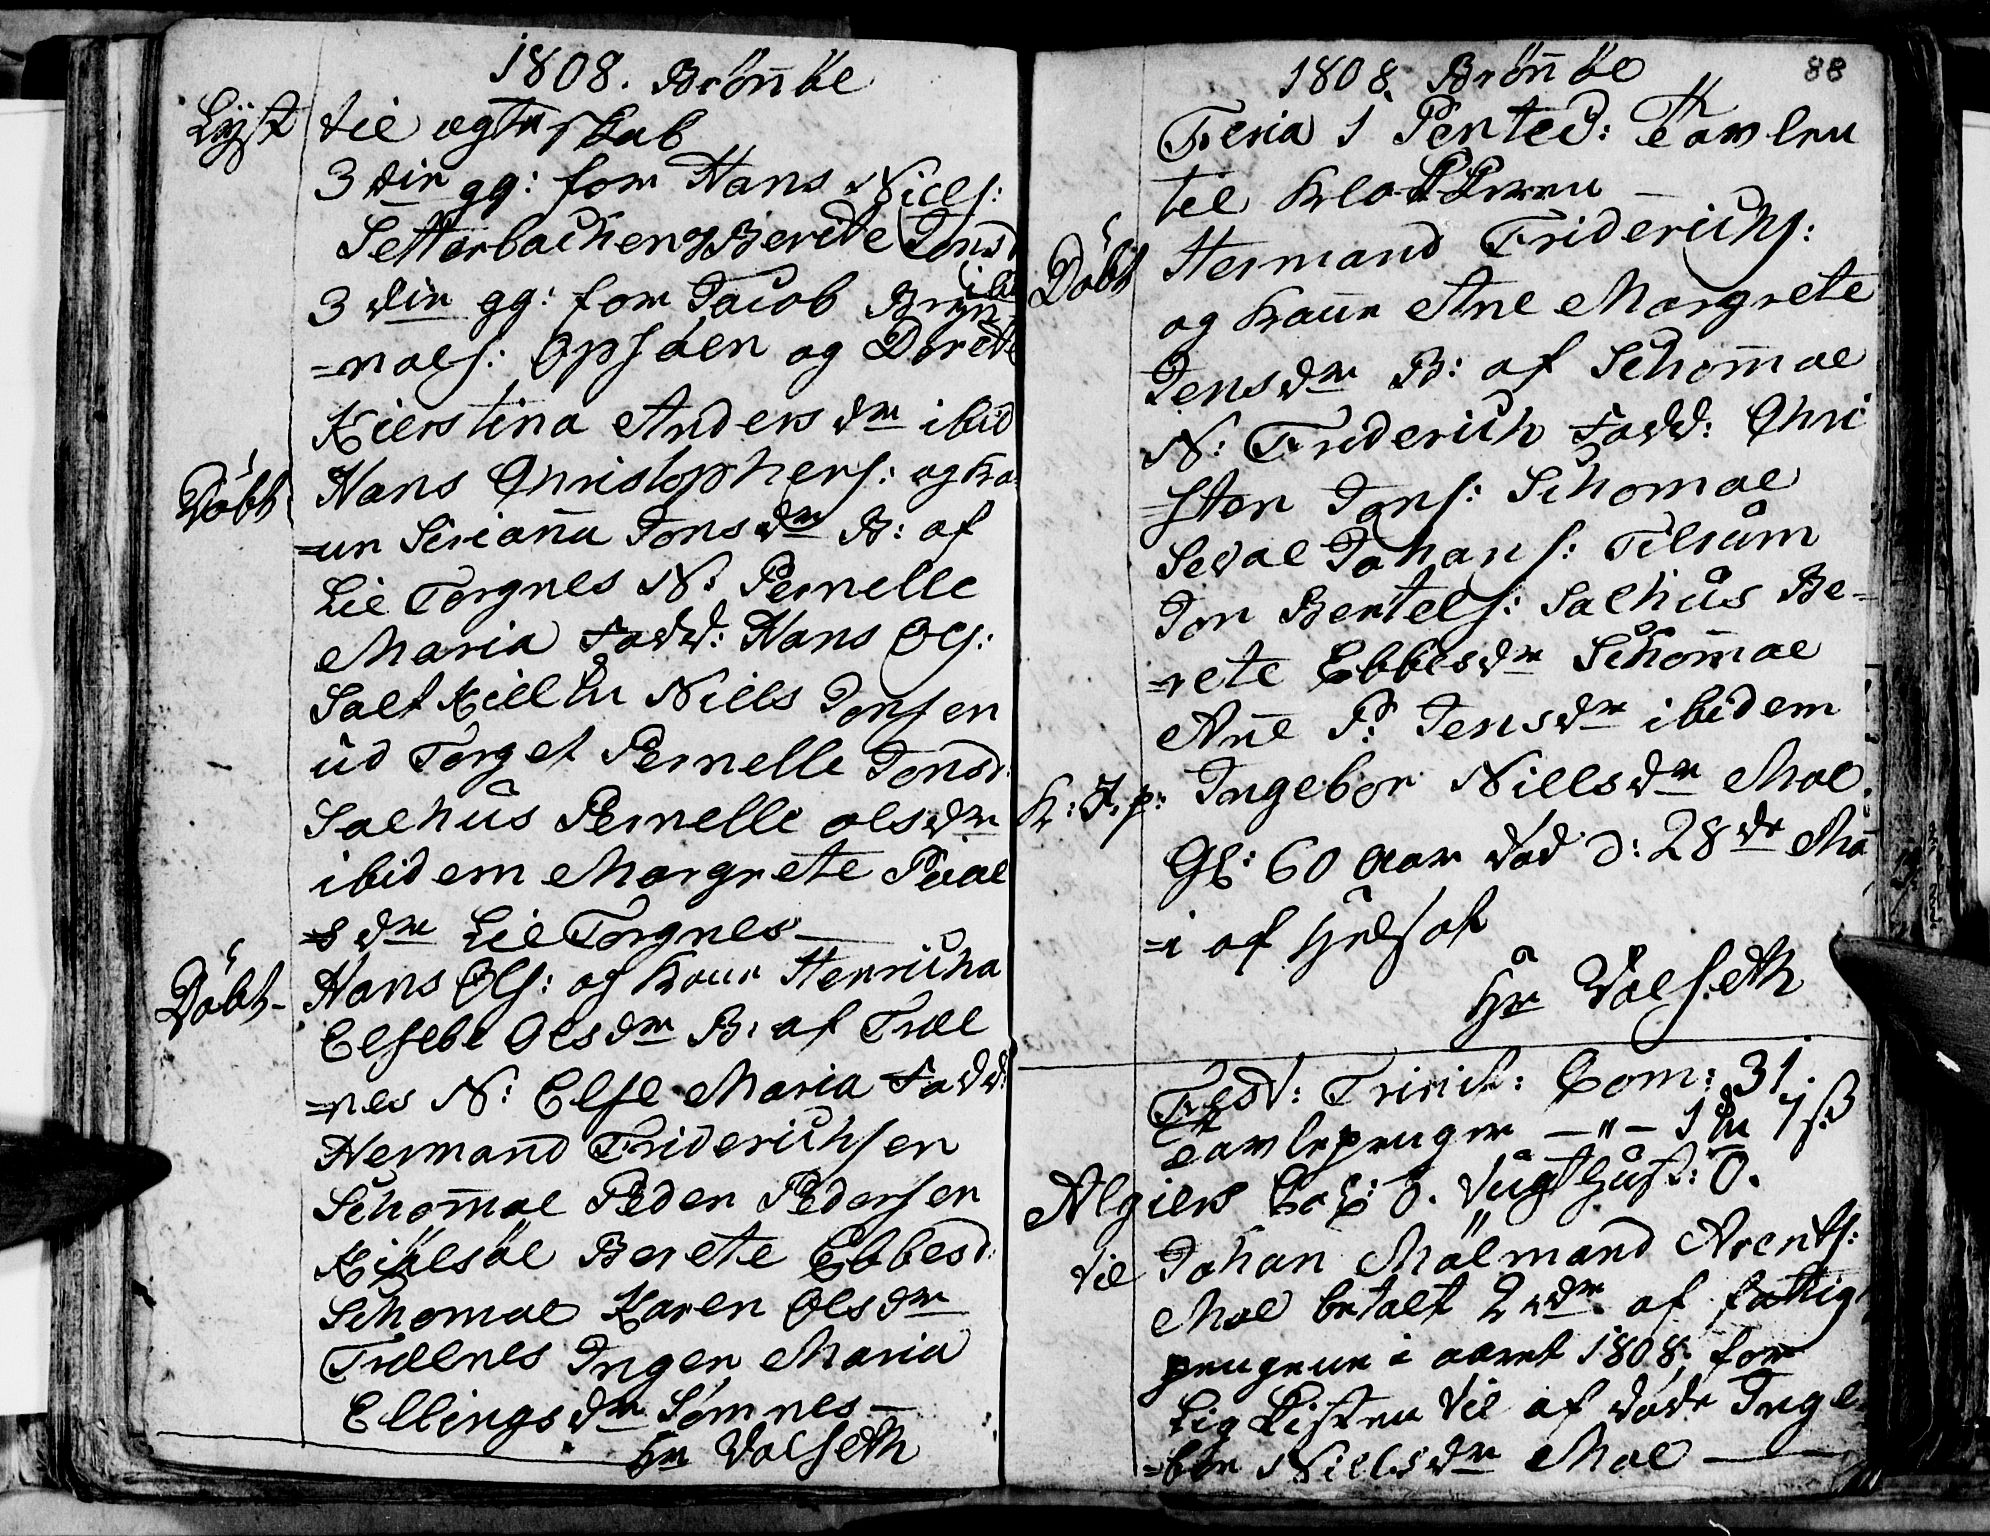 1808. Brönnöe
Lyst til ægteskab
3die gg: for Hans Niels:
Setterbachen og Berete Jonsd
ibd
3die gg: for Jacob Bryn
=nols: Opsøen og Dorete
Kierstina Andersdr ibid
Døbt Hans Christophers: og Ko
=ne Sirianna Jonsdr B: af
Lil Torgnes N: Pernelle
Maria Fadd: Hans Ols:
Salt Niels Jonsen
ud Torget Pernelle Jonsd:
Salhus Pernelle Olsdr
ibidem Margrete Poval
=sdr Lil Torgnes
Døbt Hans Ols: og Kone Henricha
Elsebe Olsdr B: af Træl
=nes N: Else Maria Fadd:
Hermand Friderichsen
Schomoe Peder Pedersen
Kiölsöe Berete Ebbesd:
Schomoe Karen Olsdr
Trælnes Inger Maria
Ellingsdr Sømnes
Hr Wolseth
1808. Brönnöe 88
Feria 1 Pented: Tavlen
til Klokkeren
Døbt Hermand Friderichs:
og Kone Ane Margrete
Jensdr B: af Schomoe
N: Friderich Fadd: Chri
=sten Jons: Schomoe
Sevol Johans: Tilrum
Jon Bertels: Salhus Be-
=rete Ebbesdr Schomoe
Ane P: Jensdr ibidem
K: J. p: Ingebor Nielsdr Moe.
Gl: 60 Aar død d: 28de Ma
=i af
Hr Wolseth
Fest: Trinit: Com: 31.
Tavlepenger - " - 1 7 ß
Algiers 0. Tugthust: 0.
til Johan Mölmand Arents:
Moe betalt 2 rdr. af fattig
pengene i aaret 1808, for
Lig Kisten til afdøde Inge
=bor Nielsdr Moe